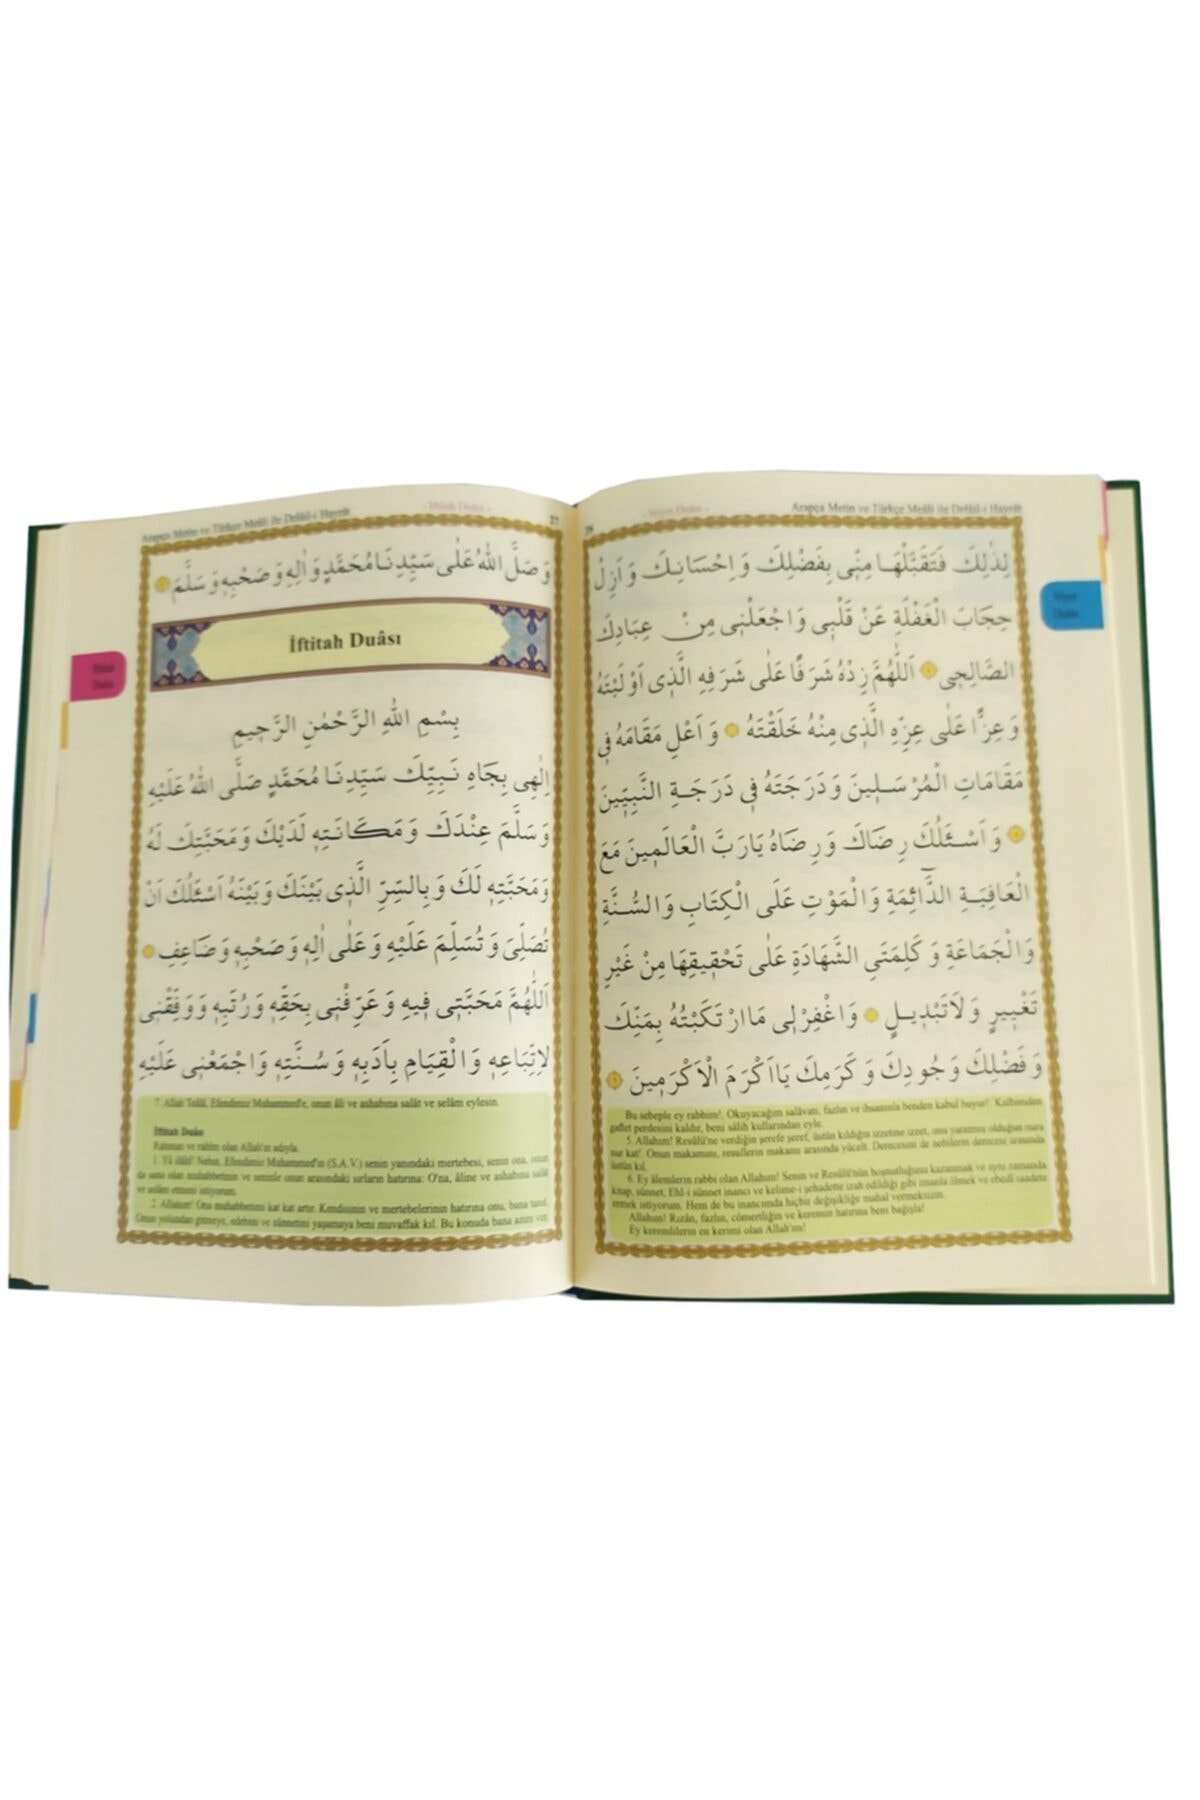 Arapça Metin ve Türkçe Meâli ile Delâil-i Hayrât
- Niyet Duâsı -
لِذٰلِكَ فَتَقَبَّلْهَا مِنّ۪ي بِفَضْلِكَ وَاِحْسَانِكَ وَاَزِلْ
حِجَابَ الْغَفْلَةِ عَنْ قَلْب۪ي وَاجْعَلْن۪ي مِنْ عِبَادِكَ
الصَّالِح۪ي اَللّٰهُمَّ زِدْهُ شَرَفًا عَلٰى شَرَفِهِ الَّذ۪ي اَوْلَيْتَهُ
وَعِزًّا عَلٰى عِزِّهِ الَّذ۪ي مِنْهُ خَلَقْتَهُ وَاَعْلِ مَقَامَهُ ف۪ي
مَقَامَاتِ الْمُرْسَل۪ينَ وَدَرَجَتَهُ ف۪ي دَرَجَةِ النَّبِيّ۪ينَ
وَاَسْئَلُكَ رِضَاكَ وَرِضَاهُ يَارَبَّ الْعَالَم۪ينَ مَعَ
الْعَافِيَةِ الدَّٓائِمَةِ وَالْمَوْتِ عَلَى الْكِتَابِ وَالسُّنَّةِ
وَالْجَمَاعَةِ وَكَلِمَتَيِ الشَّهَادَةِ عَلٰى تَحْق۪يقِهَا مِنْ غَيْرِ
تَغْي۪يرٍ وَلَاتَبْد۪يلٍ وَاغْفِرْل۪ي مَاارْتَكَبْتُهُ بِمَنِّكَ
وَفَضْلِكَ وَجُودِكَ وَكَرَمِكَ يَااَكْرَمَ الْاَكْرَم۪ينَ
Bu sebeple ey rabbim!. Okuyacağım salâvatı, fazlın ve ihsanınla benden kabul buyur! Kalbimden
gaflet perdesini kaldır, beni sâlih kullarından eyle.
5. Allahım! Resûlü'ne verdiğin şerefe şeref, üstün kıldığın izzetine izzet, onu yaratmış olduğun nura
nur kat!. Onun makamını, resullerin makamı arasında yücelt. Derecesini de nebilerin derecesi arasında
üstün kıl.
6. Ey âlemlerin rabbi olan Allahım! Senin ve Resûlü'nün hoşnutluğunu kazanmak ve aynı zamanda
kitap, sünnet, Ehl-i sünnet inancı ve kelime-i şehadette izah edildiği gibi imanla ölmek ve ebedî saadete
ermek istiyorum. Hem de bu inancımda hiçbir değişikliğe mahal vermeksizin.
Allahım! Rızân, fazlın, cömertliğin ve keremin hatırına beni bağışla!
Ey keremlilerin en kerimi olan Allah'ım!
Niyet
Duâsı
Arapça Metin ve Türkçe Meâli ile Delâil-i Hayrât
- İftitah Duâsı -
27
وَصَلَّ اللّٰهُ عَلٰى سَيِّدِنَا مُحَمَّدٍ وَاٰلِهِ وَصَحْبِه۪ وَسَلَّمَ
İftitah Duâsı
بِسْمِ اللّٰهِ الرَّحْمٰنِ الرَّح۪يمِ
اِلٰه۪ي بِجَاهِ نَبِيِّكَ سَيِّدِنَا مُحَمَّدٍ صَلَّى اللّٰهُ عَلَيْهِ
وَسَلَّمَ عِنْدَكَ وَمَكَانَتِه۪ لَدَيْكَ وَمَحَبَّتِكَ لَهُ
وَمَحَبَّتِه۪ لَكَ وَبِالسِّرِّ الَّذ۪ي بَيْنَكَ وَبَيْنَهُ اَسْئَلُكَ اَنْ
تُصَلِّيَ وَتُسَلِّمَ عَلَيْهِ وَعَلٰى اٰلِه۪ وَصَحْبِه۪ وَضَاعِفِ
اَللّٰهُمَّ مَحَبَّت۪ي ف۪يهِ وَعَرِّفْن۪ي بِحَقِّه۪ وَرُتَبِه۪ وَوَفِّقْن۪ي
لِاتِّبَاعِه۪ وَالْقِيَامِ بِاَدَبِه۪ وَسُنَّتِه۪ وَاجْمَعْن۪ي عَلَيْهِ
7. Allah Teâlâ, Efendimiz Muhammed'e, onun âli ve ashabına salât ve selâm eylesin.
İftitah Duâsı
Rahman ve rahîm olan Allah'ın adıyla.
1. Yâ ilâhî! Nebin, Efendimiz Muhammed'in (S.A.V.) senin yanındaki mertebesi, senin ona, onun
da sana olan muhabbetinin ve seninle onun arasındaki sırların hatırına: O'na, âline ve ashabına salât
ve selâm etmeni istiyorum.
2. Allahım! Ona muhabbetimi kat kat artır. Kendisinin ve mertebelerinin hatırına onu, bana tanıt.
Onun yolundan gitmeye, edebini ve sünnetini yaşamaya beni muvaffak kıl. Bu konuda bana azim ver.
İftitah
Duâsı